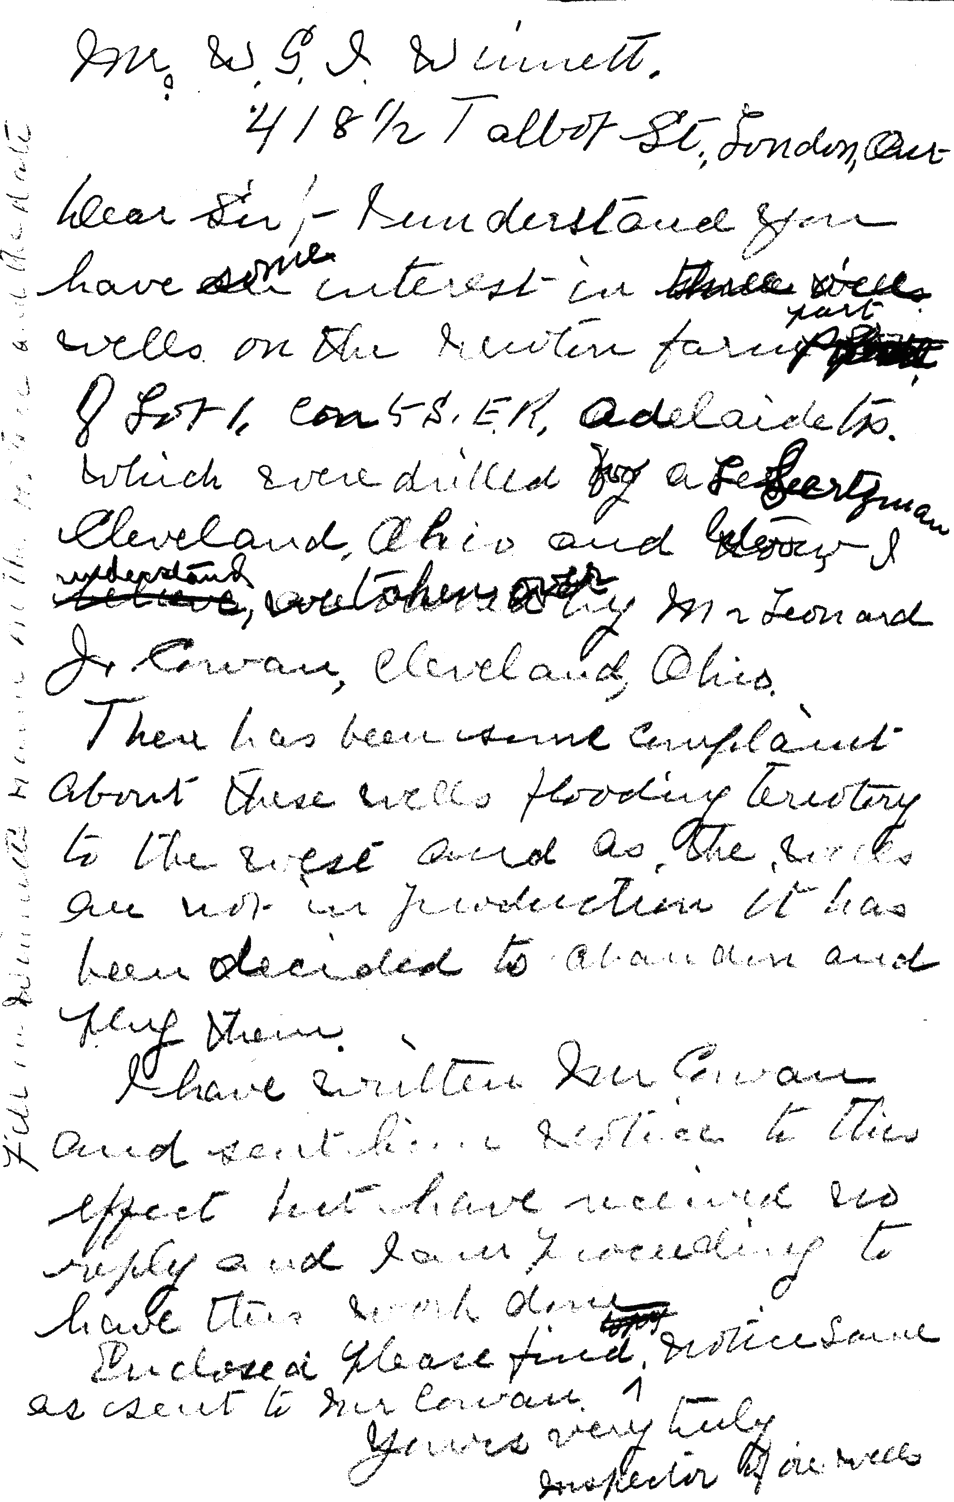 Mr. W. G. I. Winnett.
418 1/2 Talbot St., London, Ont
Dear Sir!- I understand you
have some interest in three wells
wells on the Newton farm part
of Lot 1, Con 5 S.E.R. Adelaide Tp.
which were drilled by a Le Swartzman
Cleveland, Ohio and now I
believe, understand were taken over by Mr Leonard
Jr Cowan, Cleveland, Ohio.
There has been some complaint
about these wells flooding territory
to the west and as the wells
are not in production it has
been decided to abandon and
plug them.
I have written Mr Cowan
and sent him notice to this
effect but have received no
reply and I am proceeding to
have this work done
Enclosed please find copy notice same
as sent to Mr Cowan.
Yours very truly
Inspector of Wells
Fill in Winnetts name in the notice and the date